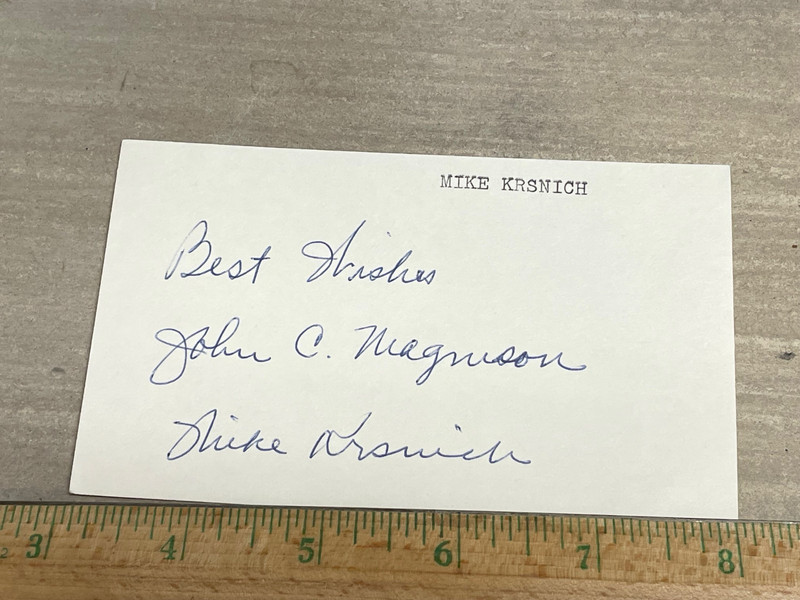 MIKE KRSNICH
Best Wishes
John C. Magnuson
Mike Krsnich
2 3 4 5 6 7 8